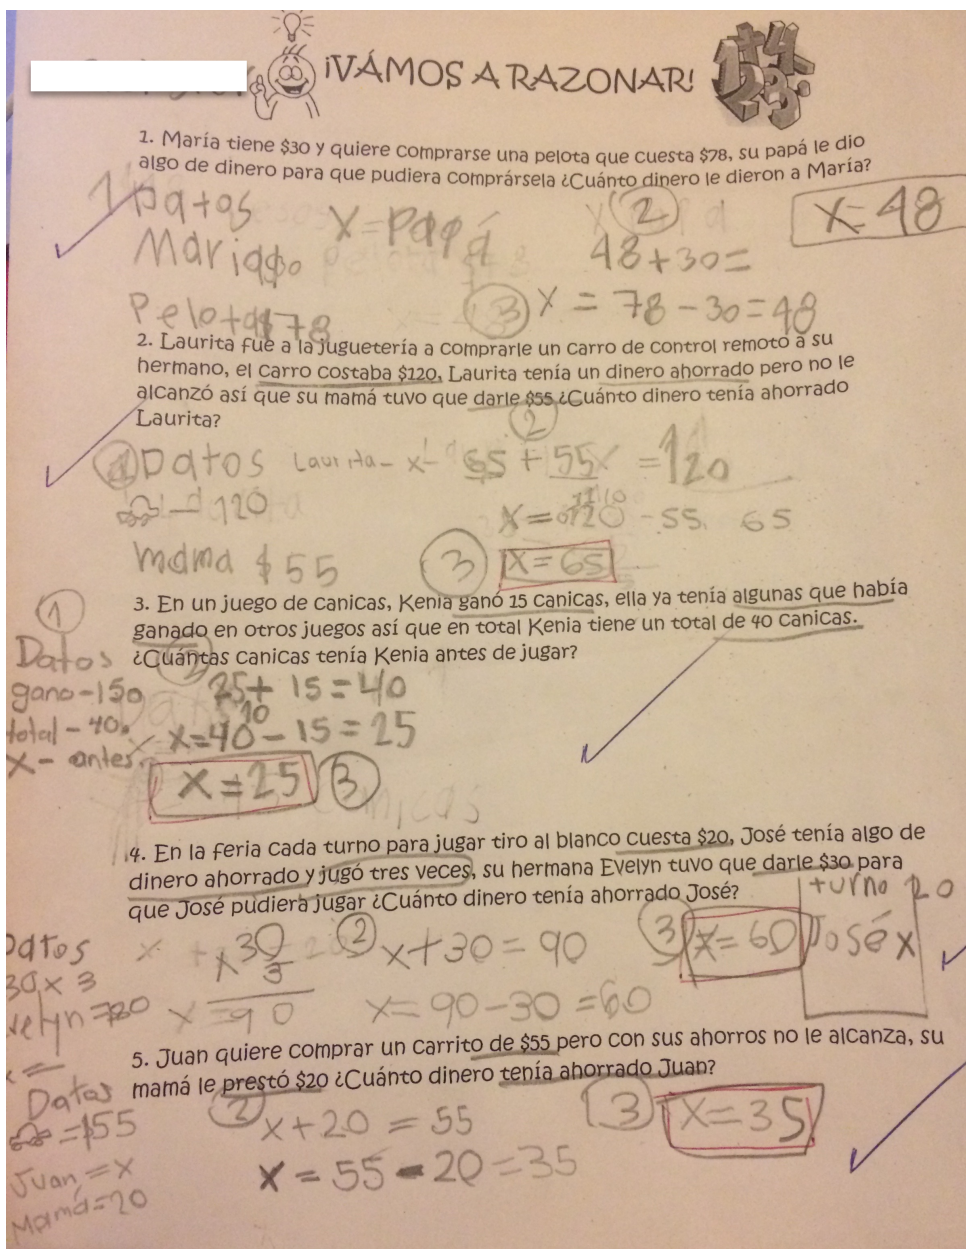 ¡VÁMOS A RAZONAR!
1. María tiene $30 y quiere comprarse una pelota que cuesta $78, su papá le dio
algo de dinero para que pudiera comprársela ¿Cuánto dinero le dieron a María?
1 Datos
X=Papá
2
X=48
Maria $30
48+30=
Pelota $78
3 X = 78-30=48
2. Laurita fue a la juguetería a comprarle un carro de control remoto a su
hermano, el carro costaba $120, Laurita tenía un dinero ahorrado pero no le
alcanzó así que su mamá tuvo que darle $55 ¿Cuánto dinero tenía ahorrado
Laurita?
2
1 Datos Laurita- x- 65 + 55 = 120
- 120
X= 120 -55 65
mama $55
3 X=65
3. En un juego de canicas, Kenia ganó 15 canicas, ella ya tenía algunas que había
ganado en otros juegos así que en total Kenia tiene un total de 40 canicas.
¿Cuántas canicas tenía Kenia antes de jugar?
1
Datos
2
gano-15
25+ 15=40
total-40
X=40-15=25
X- antes
X=25 3
4. En la feria cada turno para jugar tiro al blanco cuesta $20, José tenía algo de
dinero ahorrado y jugó tres veces, su hermana Evelyn tuvo que darle $30 para
que José pudiera jugar ¿Cuánto dinero tenía ahorrado José?
turno 20
José x
Datos
30
x 3
90
2 x+30=90
3 X=60
30x3
x=90-30=60
5. Juan quiere comprar un carrito de $55 pero con sus ahorros no le alcanza, su
mamá le prestó $20 ¿Cuánto dinero tenía ahorrado Juan?
Datos
2 x+20=55
3 X=35
=$55
Juan=x
X=55-20=35
Mamá=20